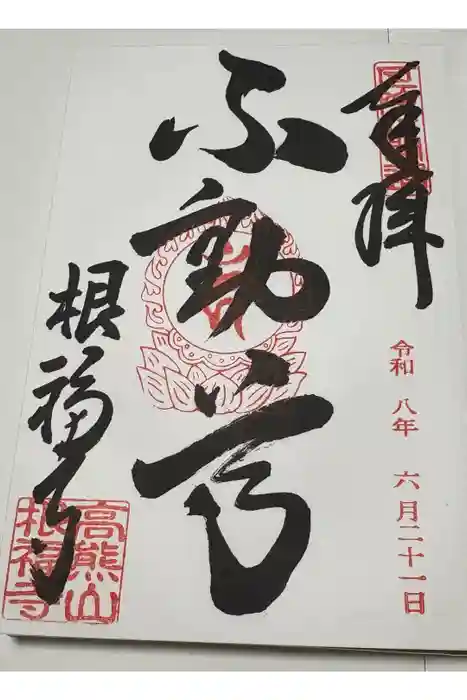 奉拝
令和 八年 六月二十一日
不動尊
根福寺
高熊山
根福寺